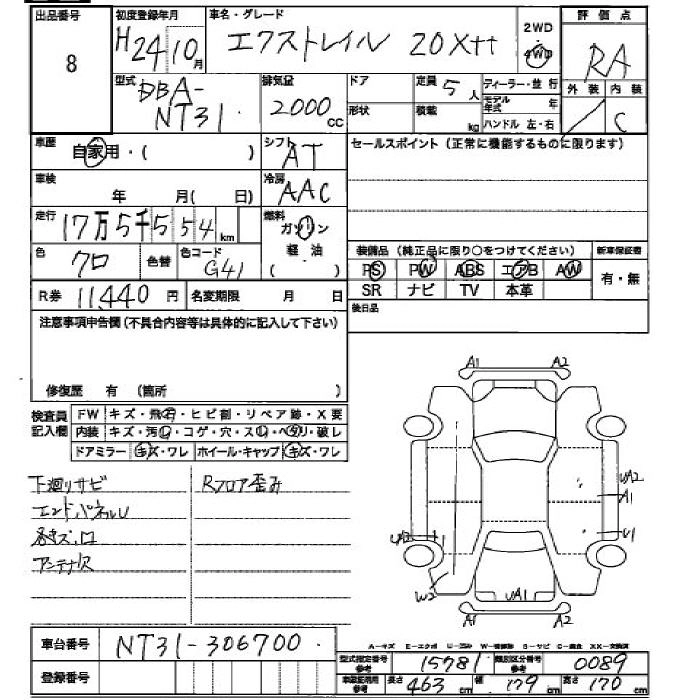 出品番号 初度登録年月 車名・グレード 2WD 評価点
8 H24 10月 エクストレイル 20Xtt 4WD RA
型式 DBA-NT31 排気量 2000cc ドア 定員 5人 ディーラー・並行 外装 内装
形状 積載 kg モデル年式 年 C
ハンドル 左・右
車歴 自家用・( ) シフト AT セールスポイント(正常に機能するものに限ります)
車検 年 月( 日) 冷房 AAC
走行 17万5千554km 燃料 ガソリン
軽油
( )
色 クロ 色替 色コード G41 装備品(純正品に限り○をつけてください) 新車保証書
PS PW ABS エアB AW 有・無
R券 11440円 名変期限 月 日 SR ナビ TV 本革
注意事項申告欄(不具合内容等は具体的に記入して下さい) 後日品
修復歴 有 (箇所 )
検査員記入欄 FW キズ・飛石・ヒビ割・リペア跡・X要
内装 キズ・汚レ・コゲ・穴・スレ・ヘタリ・破レ
ドアミラー キズ・ワレ ホイール・キャップ キズ・ワレ
A1 A2
下廻りサビ Rフロア歪み
エンドパネルU
アンテナ欠
UA2
A1
U1
UA2
W2 UA1
A1 A2
車台番号 NT31-306700
A-キズ E-エクボ S-サビ
登録番号 型式指定番号 参考 15781 類別区分番号 参考 0089
長さ 463cm 幅 179cm 高さ 170cm